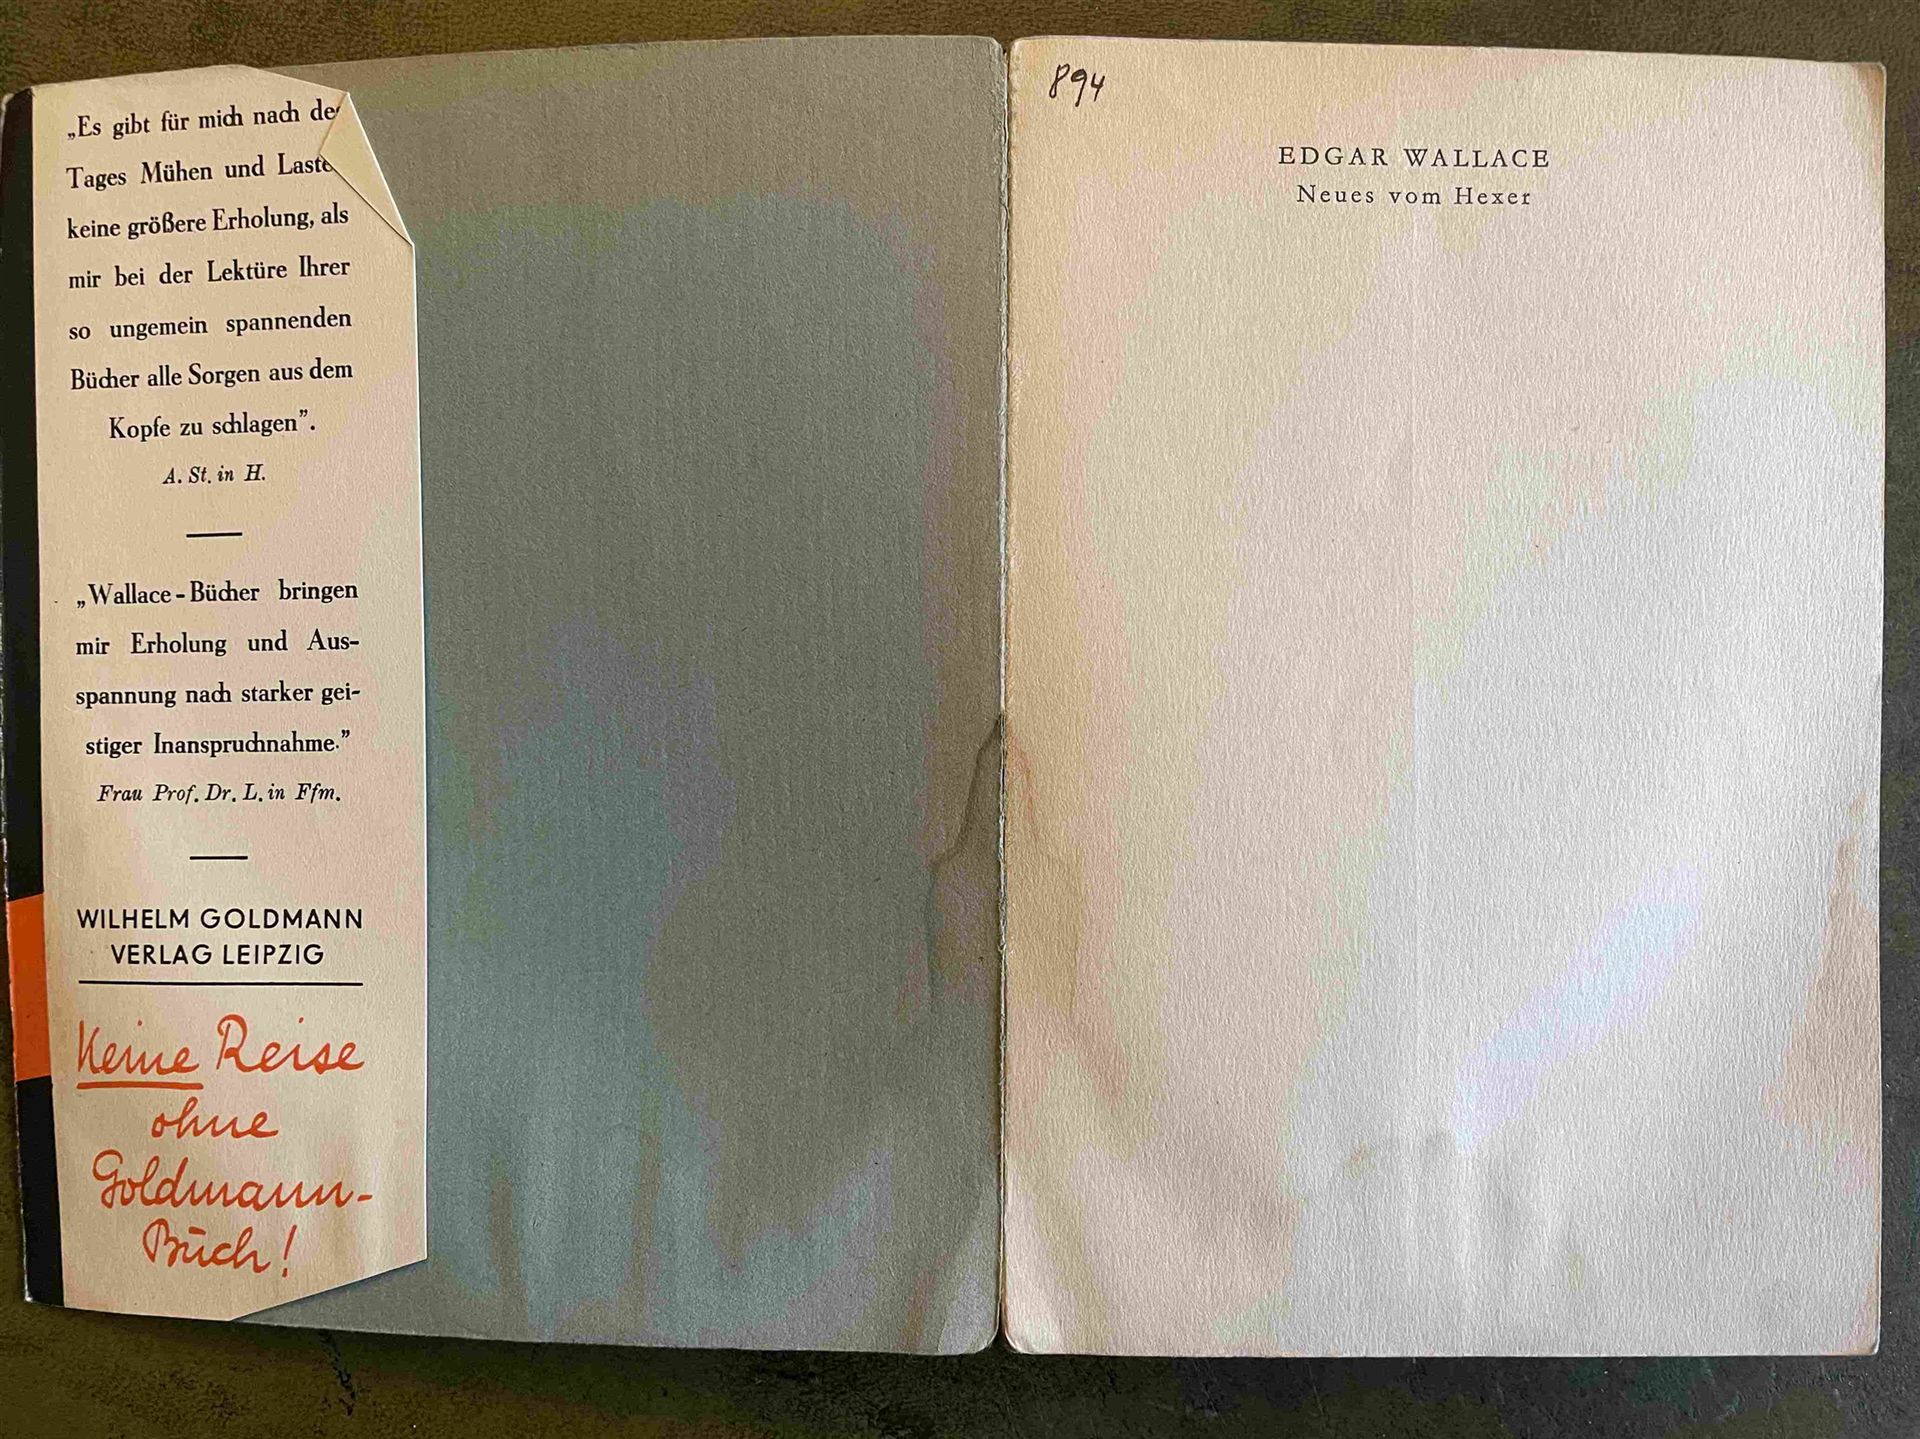 „Es gibt für mich nach de
Tages Mühen und Laste
keine größere Erholung, als
mir bei der Lektüre Ihrer
so ungemein spannenden
Bücher alle Sorgen aus dem
Kopfe zu schlagen”.
A. St. in H.
„Wallace-Bücher bringen
mir Erholung und Aus-
spannung nach starker gei-
stiger Inanspruchnahme.”
Frau Prof. Dr. L. in Ffm.
WILHELM GOLDMANN
VERLAG LEIPZIG
Keine Reise
ohne
Goldmann-
Buch!
894
EDGAR WALLACE
Neues vom Hexer